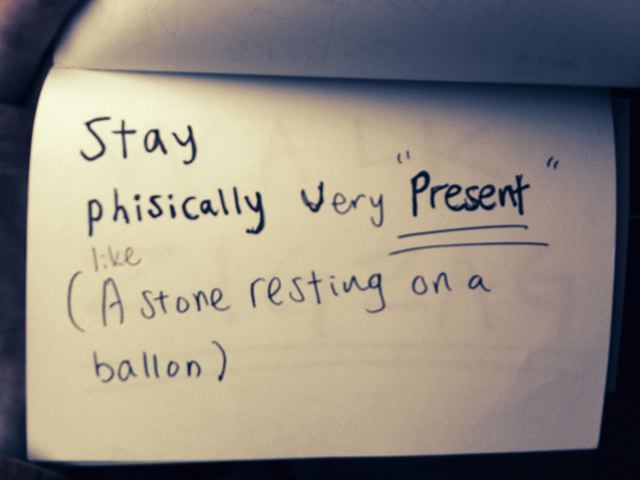 Stay
phisically very "Present"
like
(A stone resting on a
ballon)